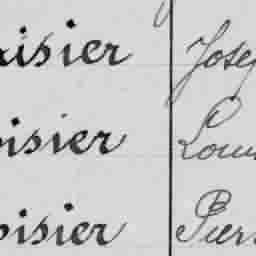 isier Jose
isier Loui
isier Pier